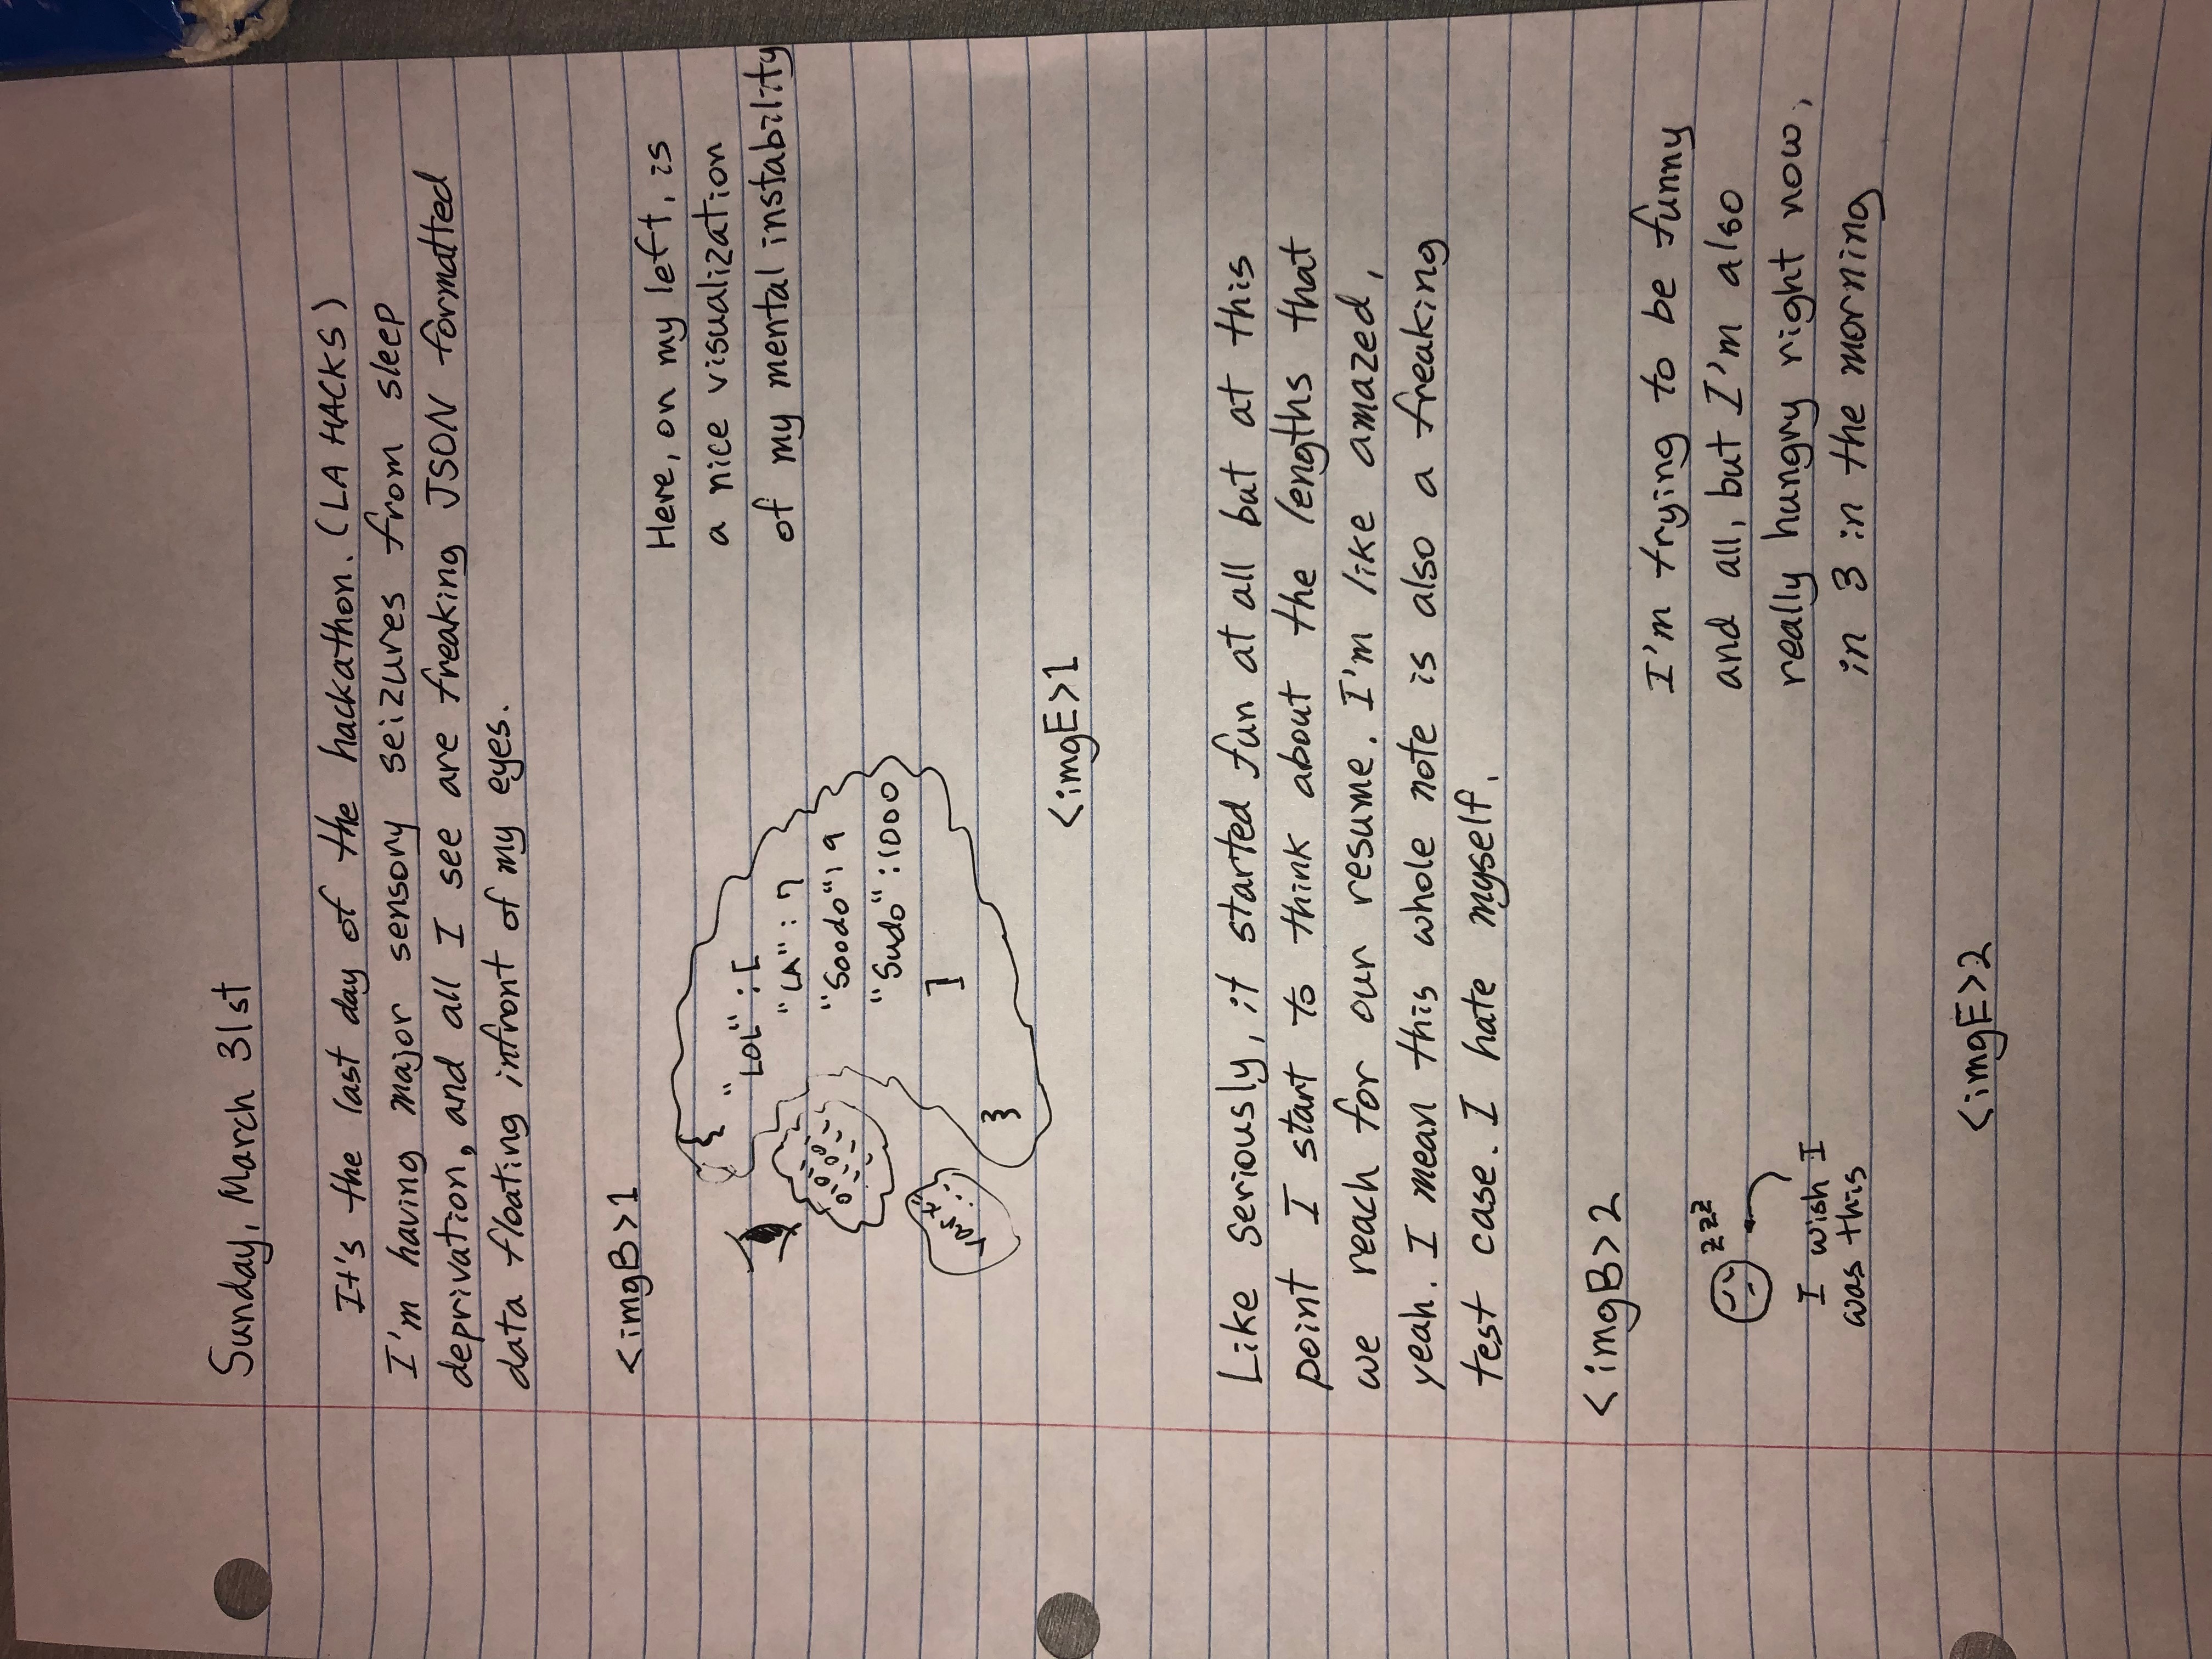 Sunday, March 31st
It's the last day of the hackathon. (LA HACKS)
I'm having major sensory seizures from sleep
deprivation, and all I see are freaking JSON formatted
data floating infront of my eyes.
<imgB>1
{
"LOL" : [
"LA" : 7
"Soodo" : 9
"Sudo" : 1000
]
}
01011
11001
11111
var x =
...
Here, on my left, is
a nice visualization
of my mental instability
<imgE>1
Like seriously, it started fun at all but at this
point I start to think about the lengths that
we reach for our resume. I'm like amazed,
yeah. I mean this whole note is also a freaking
test case. I hate myself.
<imgB>2
zzz
I wish I
was this
I'm trying to be funny
and all, but I'm also
really hungry right now,
in 3 in the morning
<imgE>2